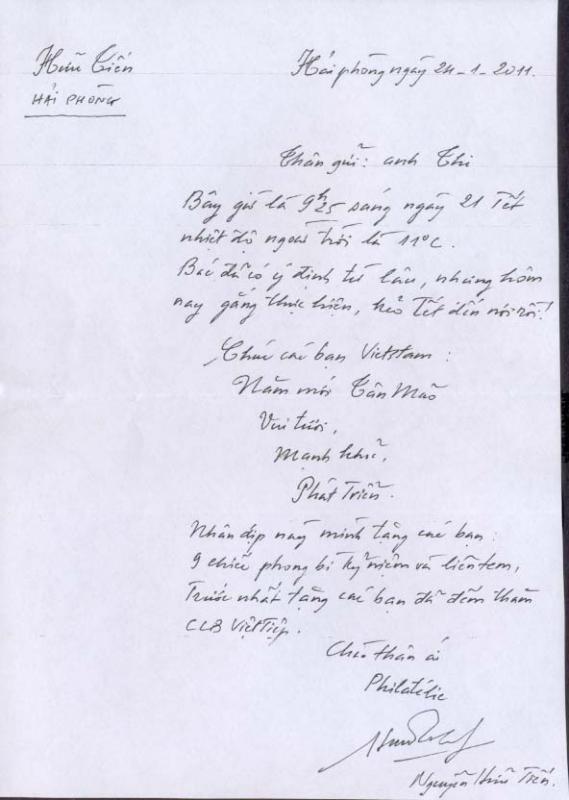 Hữu Tiến
Hải phòng ngày 24-1-2011.
HẢI PHÒNG
Thân gửi: anh Thi
Bây giờ là 9h25 sáng ngày 21 Tết
nhiệt độ ngoài trời là 11°C.
Bác đã có ý định từ lâu, nhưng hôm
nay gắng thực hiện, kẻo Tết đến nơi rồi!
Chúc các bạn Vietstam:
Năm mới Tân Mão
Vui tươi,
Mạnh khoẻ,
Phát Triển.
Nhân dịp này mình tặng các bạn:
9 chiếc phong bì kỷ niệm và liên tem,
Trước nhất tặng các bạn đã đến thăm
CLB Việt Tiệp.
Chào thân ái
Philatélie
Nguyễn Hữu Tiến.